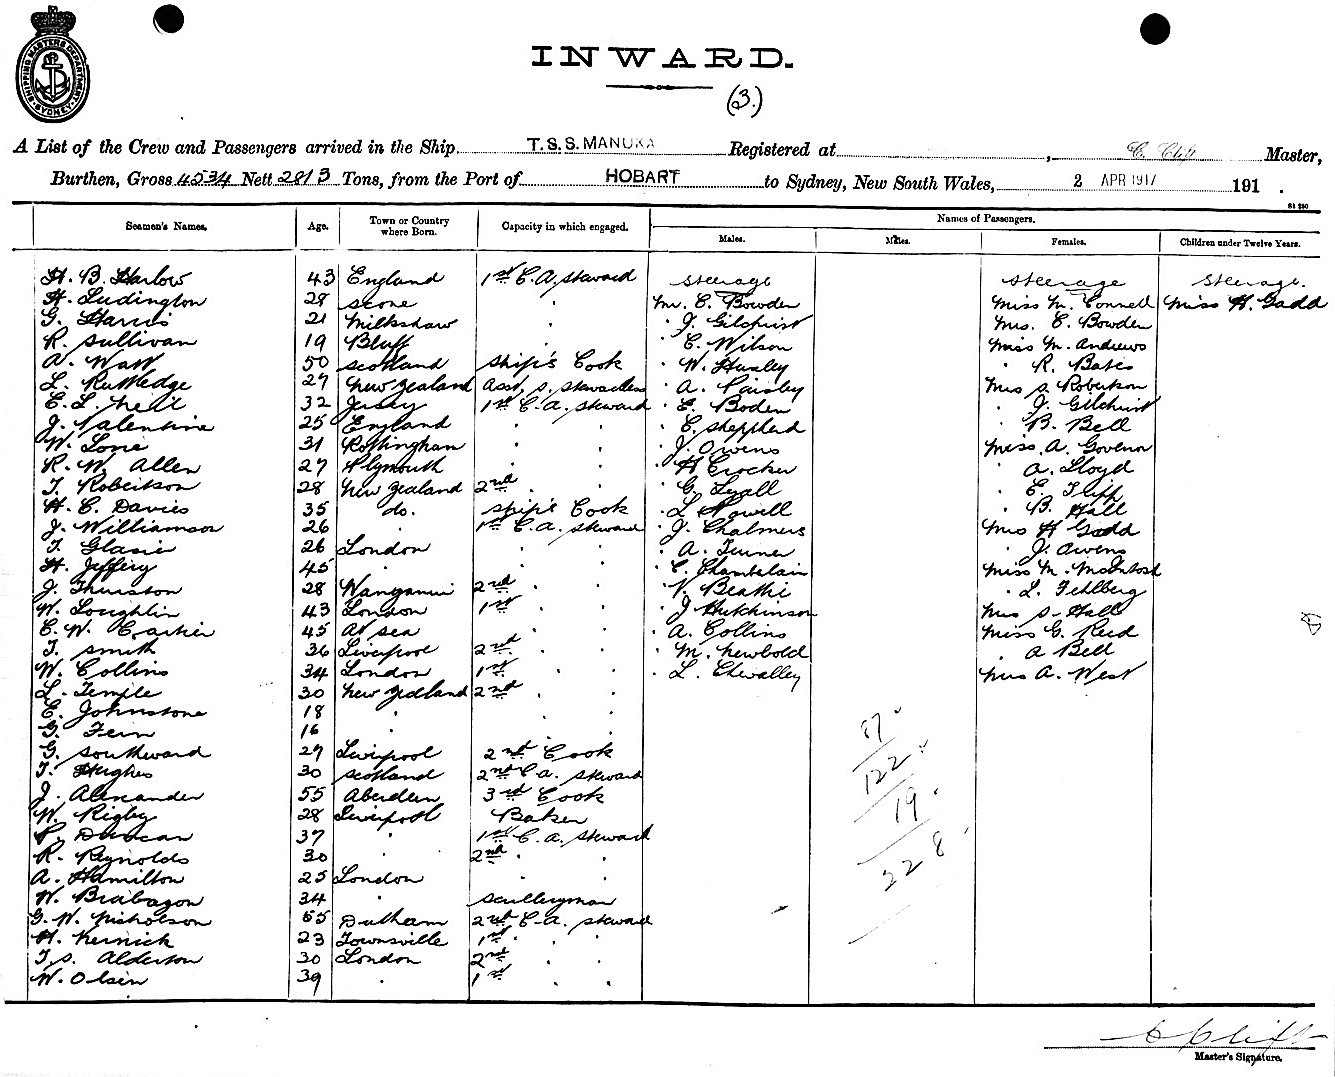 SHIPPING MASTERS DEPARTMENT SYDNEY
INWARD.
(3.)
A List of the Crew and Passengers arrived in the Ship T.S.S. MANUKA Registered at , C. Clift Master,
Burthen, Gross 4534 Nett 2813 Tons, from the Port of HOBART to Sydney, New South Wales, 2 APR 1917 191 .
Seamen's Names. Age. Town or Country where Born. Capacity in which engaged. Names of Passengers.
Males. Males. Females. Children under Twelve Years.
H. B. Harlow 43 England 1st C. A. Steward Steerage Steerage Steerage.
H. Ludington 28 Scone Mr. C. Bowden Miss M. Connell Miss H. Gadd
G. Harris 21 J. Gilchrist Mrs. C. Bowden
R. Sullivan 19 Bluff C. Wilson Miss M. Andrews
A. Watt 50 Scotland Ship's Cook W. Huxley R. Bates
L. Rutledge 27 New Zealand Asst. S. A. Paisley Mrs S. Robertson
E. L. Neil 32 Jersey 1st C. A. Steward E. Boden J. Gilchrist
J. Valentine 25 England C. Shepherd B. Bell
W. Lorie 31 Nottingham J. Owens Miss A. Govenor
R. W. Allen 27 Plymouth H Crocker A. Lloyd
T. Robertson 28 New Zealand 2nd G. Lyall E. Iliff
H. C. Davies 35 do. Ship's Cook L Nowell B. Hall
J. Williamson 26 1st C. A. Steward J. Chalmers Mrs H Gadd
T. Glasie 26 London A. Turner J. Owens
H. Jeffery 45 C. Chamberlain Miss M. McIntosh
J. Thurston 28 Wanganui 2nd V. Beattie L. Fehlberg
W. Loughlin 43 London 1st J Hutchinson Mrs S. Hall
C. W. Carter 45 At sea A. Collins Miss G. Reid
T. Smith 36 Liverpool 2nd M. Newbold A Bell
W. Collins 34 London 1st L. Chevalley Mrs A. West
L. Temple 30 New Zealand 2nd
E. Johnstone 18
G. Fern 16 87
G. Southward 29 Liverpool 2nd Cook
T. Hughes 30 Scotland 2nd C. A. Steward 122
J. Alexander 55 Aberdeen 3rd Cook
W. Rigby 28 Liverpool Baker 19
P. Duncan 37 1st C. A. Steward
R. Reynolds 30 2nd 228
A. Hamilton 25 London
W. Brabazon 34 Sculleryman
G. W. Nicholson 55 Durham 2nd C. A. Steward
H. Kernick 23 Townsville 1st
T. S. Alderton 30 London 2nd
W. Olsen 39 1st
C Clift
Master's Signature.